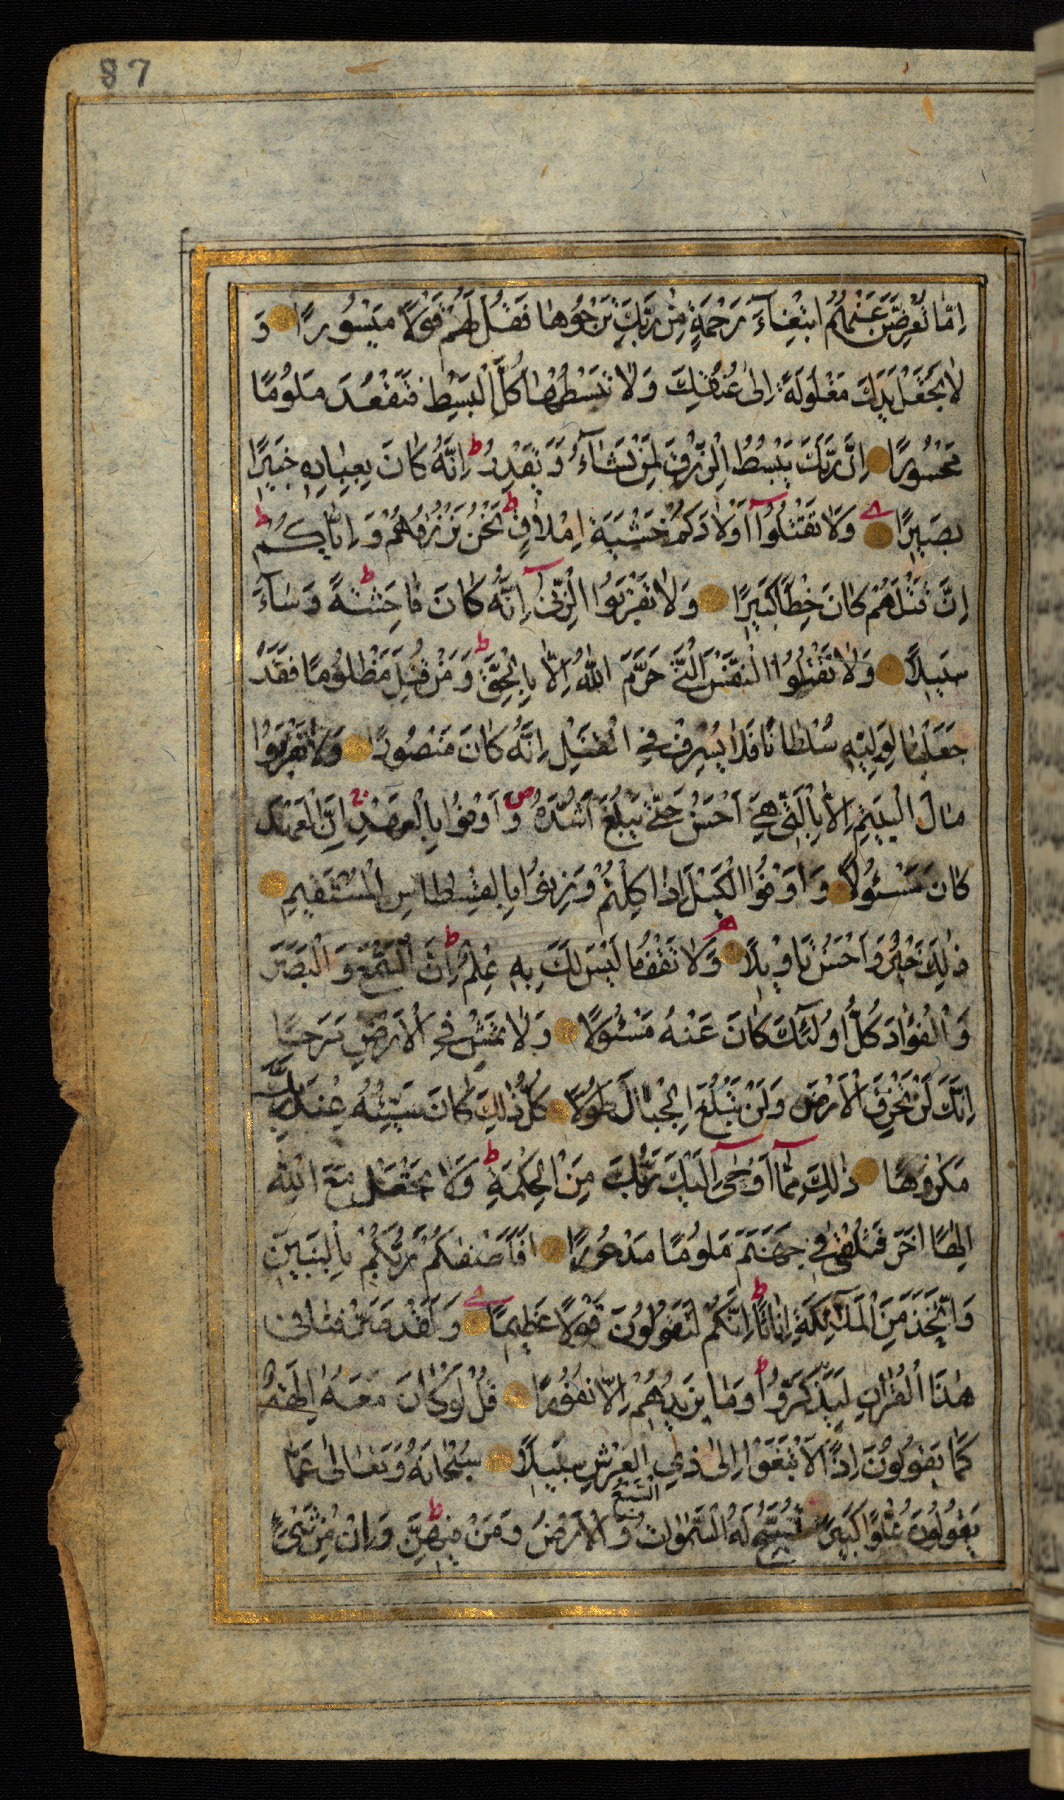 87
اِمَّا تُعْرِضَنَّ عَنْهُمُ ابْتِغَآءَ رَحْمَةٍ مِنْ رَبِّكَ تَرْجُوهَا فَقُلْ لَهُمْ قَوْلًا مَيْسُورًا وَ
لَا تَجْعَلْ يَدَكَ مَغْلُولَةً اِلٰى عُنُقِكَ وَلَا تَبْسُطْهَا كُلَّ الْبَسْطِ فَتَقْعُدَ مَلُومًا
مَحْسُورًا اِنَّ رَبَّكَ يَبْسُطُ الرِّزْقَ لِمَنْ يَشَآءُ وَ يَقْدِرُ ط اِنَّهُ كَانَ بِعِبَادِهِ خَبِيرًا
بَصِيرًا وَلَا تَقْتُلُوٓا اَوْلَادَكُمْ خَشْيَةَ اِمْلَاقٍ ط نَحْنُ نَرْزُقُهُمْ وَ اِيَّاكُمْ ط
اِنَّ قَتْلَهُمْ كَانَ خِطْأً كَبِيرًا وَلَا تَقْرَبُوا الزِّنٰٓى اِنَّهُ كَانَ فَاحِشَةً ط وَ سَآءَ
سَبِيلًا وَلَا تَقْتُلُوا النَّفْسَ الَّتِي حَرَّمَ اللهُ اِلَّا بِالْحَقِّ ط وَ مَنْ قُتِلَ مَظْلُومًا فَقَدْ
جَعَلْنَا لِوَلِيِّهِ سُلْطَانًا فَلَا يُسْرِفْ فِي الْقَتْلِ اِنَّهُ كَانَ مَنْصُورًا وَلَا تَقْرَبُوا
مَالَ الْيَتِيمِ اِلَّا بِالَّتِي هِيَ اَحْسَنُ حَتّٰى يَبْلُغَ اَشُدَّهُ ص وَ اَوْفُوا بِالْعَهْدِ ج اِنَّ الْعَهْدَ
كَانَ مَسْئُولًا وَ اَوْفُوا الْكَيْلَ اِذَا كِلْتُمْ وَ زِنُوا بِالْقِسْطَاسِ الْمُسْتَقِيمِ
ذٰلِكَ خَيْرٌ وَ اَحْسَنُ تَاْوِيلًا وَلَا تَقْفُ مَا لَيْسَ لَكَ بِهِ عِلْمٌ ط اِنَّ السَّمْعَ وَ الْبَصَرَ
وَ الْفُؤَادَ كُلُّ اُولٰئِكَ كَانَ عَنْهُ مَسْئُولًا وَلَا تَمْشِ فِي الْاَرْضِ مَرَحًا
اِنَّكَ لَنْ تَخْرِقَ الْاَرْضَ وَلَنْ تَبْلُغَ الْجِبَالَ طُولًا كُلُّ ذٰلِكَ كَانَ سَيِّئُهُ عِنْدَ رَبِّكَ
مَكْرُوهًا ذٰلِكَ مِمَّٓا اَوْحٰٓى اِلَيْكَ رَبُّكَ مِنَ الْحِكْمَةِ ط وَلَا تَجْعَلْ مَعَ اللهِ
اِلٰهًا اٰخَرَ فَتُلْقٰى فِي جَهَنَّمَ مَلُومًا مَدْحُورًا اَفَاَصْفٰيكُمْ رَبُّكُمْ بِالْبَنِينَ
وَ اتَّخَذَ مِنَ الْمَلٰٓئِكَةِ اِنَاثًا ط اِنَّكُمْ لَتَقُولُونَ قَوْلًا عَظِيمًا وَ لَقَدْ صَرَّفْنَا فِي
هٰذَا الْقُرْاٰنِ لِيَذَّكَّرُوا ط وَمَا يَزِيدُهُمْ اِلَّا نُفُورًا قُلْ لَوْ كَانَ مَعَهُ اٰلِهَةٌ
كَمَا يَقُولُونَ اِذًا لَابْتَغَوْا اِلٰى ذِي الْعَرْشِ سَبِيلًا سُبْحَانَهُ وَ تَعَالٰى عَمَّا
يَقُولُونَ عُلُوًّا كَبِيرًا تُسَبِّحُ لَهُ السَّمٰوَاتُ السَّبْعُ وَ الْاَرْضُ وَ مَنْ فِيهِنَّ ط وَ اِنْ مِنْ شَيْءٍ